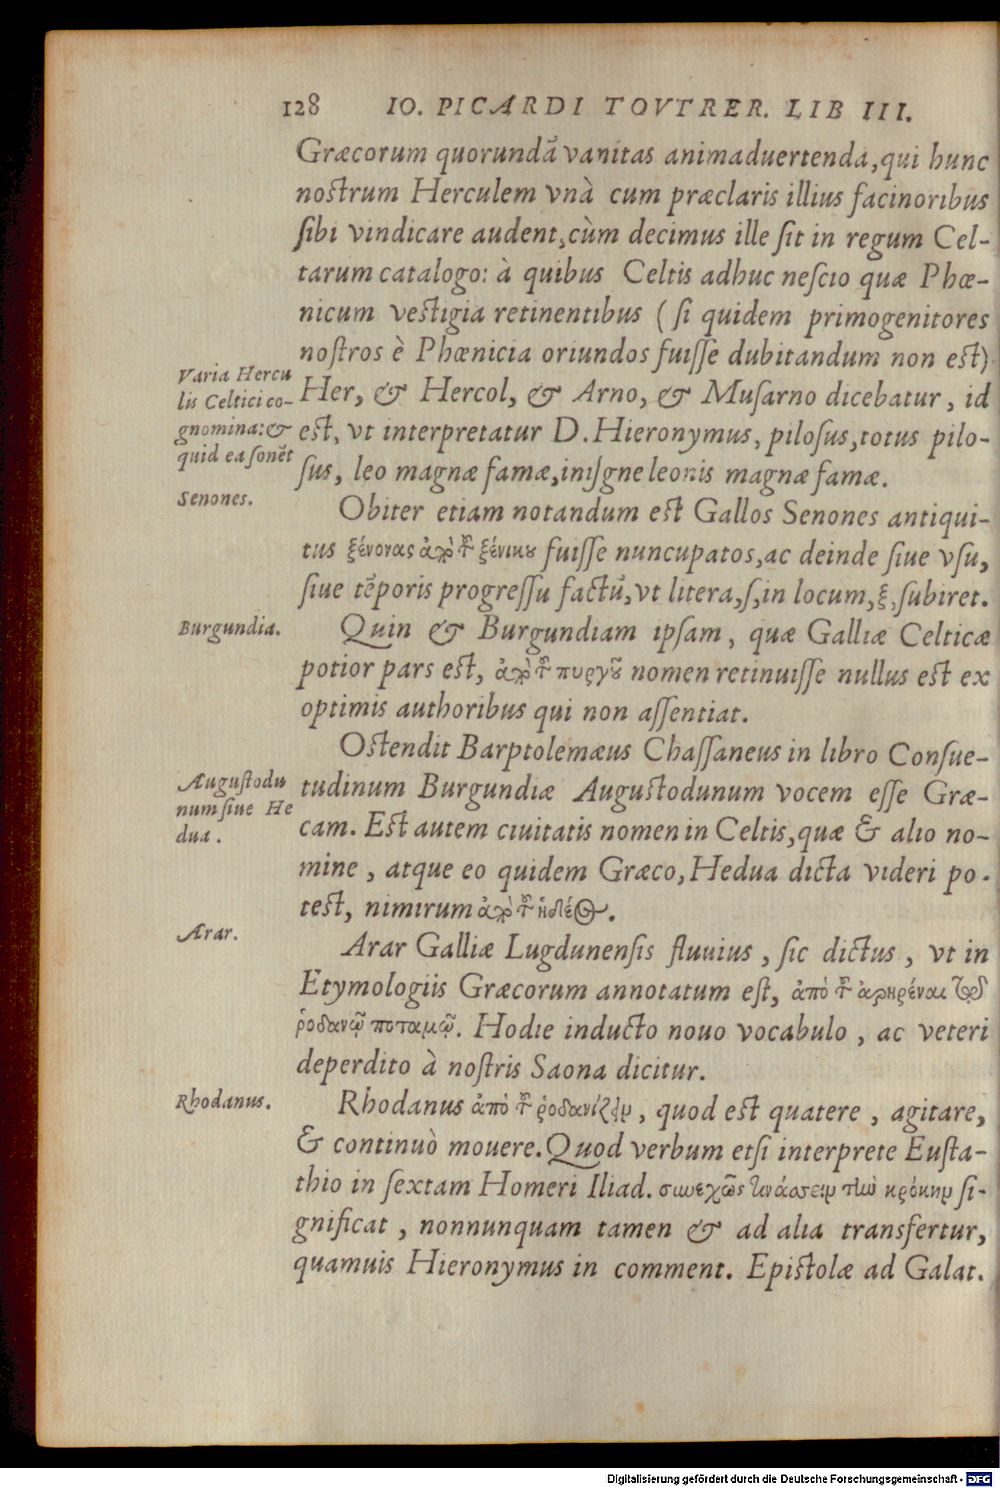 128 IO. PICARDI TOVTRER. LIB III.
Græcorum quorundā vanitas animaduertenda, qui hunc
noſtrum Herculem vnà cum præclaris illius facinoribus
ſibi vindicare audent, cùm decimus ille ſit in regum Cel-
tarum catalogo: à quibus Celtis adhuc neſcio quæ Phœ-
nicum veſtigia retinentibus ( ſi quidem primogenitores
noſtros è Phœnicia oriundos fuiſſe dubitandum non eſt)
Varia Hercu
lis Celtici co-
gnomina: &
quid ea ſonēt
Her, & Hercol, & Arno, & Muſarno dicebatur, id
eſt, vt interpretatur D. Hieronymus, piloſus, totus pilo-
ſus, leo magnæ famæ, iniſgne leonis magnæ famæ.
Senones.
Obiter etiam notandum eſt Gallos Senones antiqui-
tus ξένονας ἀπὸ τῦ ξένικου fuiſſe nuncupatos, ac deinde ſiue vſu,
ſiue tēporis progreſſu factū, vt litera, ſ, in locum, ξ, ſubiret.
Burgundia.
Quin & Burgundiam ipſam, quæ Galliæ Celticæ
potior pars eſt, ἀπὸ τῦ πυργοῦ nomen retinuiſſe nullus eſt ex
optimis authoribus qui non aſſentiat.
Oſtendit Barptolemæus Chaſſaneus in libro Conſue-
Auguſtodu
num ſiue He
dua.
tudinum Burgundiæ Auguſtodunum vocem eſſe Græ-
cam. Eſt autem ciuitatis nomen in Celtis, quæ & alio no-
mine, atque eo quidem Græco, Hedua dicta videri po-
teſt, nimirum ἀπὸ τῦ ἡδέος.
Arar.
Arar Galliæ Lugdunenſis fluuius, ſic dictus, vt in
Etymologiis Græcorum annotatum eſt, ἀπὸ τῦ ἀρηρέναι τῷ
ῥοδανῷ ποταμῷ. Hodie inducto nouo vocabulo, ac veteri
deperdito à noſtris Saona dicitur.
Rhodanus.
Rhodanus ἀπὸ τῦ ῥοδανίζειν, quod eſt quatere, agitare,
& continuò mouere. Quod verbum etſi interprete Euſta-
thio in ſextam Homeri Iliad. συνεχῶς τινάσσειν τὴν κρόκην ſi-
gnificat, nonnunquam tamen & ad alia transfertur,
quamuis Hieronymus in comment. Epiſtolæ ad Galat.
Digitalisierung gefördert durch die Deutsche Forschungsgemeinschaft - DFG